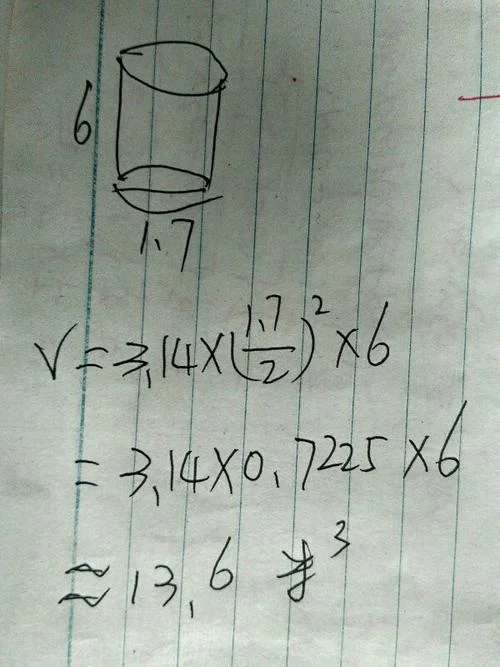 6
1.7
V=3.14×(1.7/2)²×6
=3.14×0.7225×6
≈13.6 米³